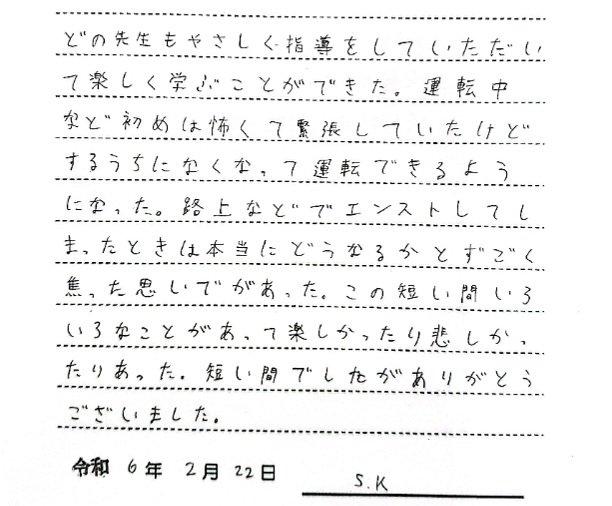 どの先生もやさしく指導をしていただい
て楽しく学ぶことができた。運転中
など初めは怖くて緊張していたけど
するうちになくなって運転できるよう
になった。路上などでエンストしてし
まったときは本当にどうなるかとすごく
焦った思いでがあった。この短い間いろ
いろなことがあって楽しかったり悲しかっ
たりあった。短い間でしたがありがとう
ございました。
令和 6年 2月 22日
S.K